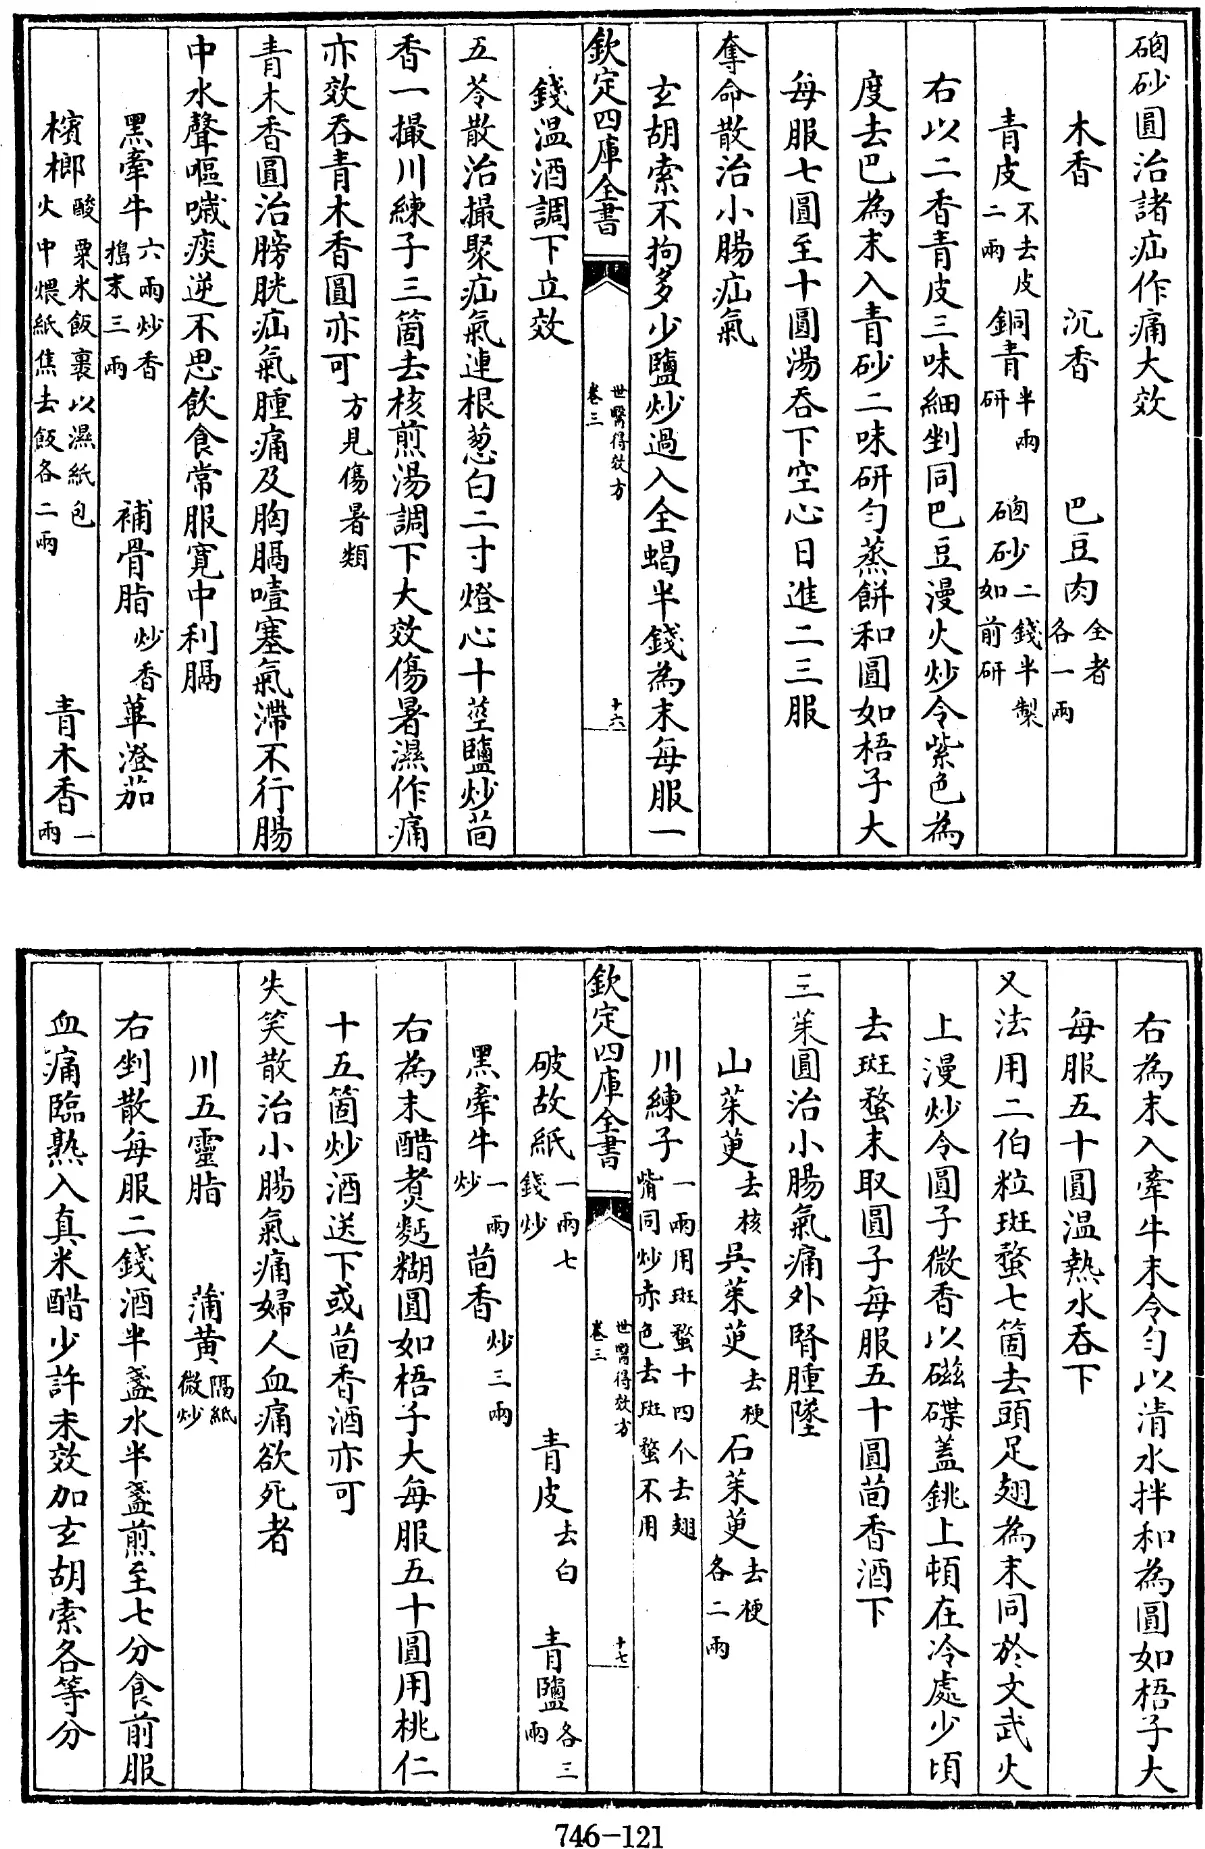 硇砂圓治諸疝作痛大效
木香 沉香 巴豆肉全者各一兩
青皮不去皮二兩 銅青半兩研 硇砂二錢半製如前研
右以二香青皮三味細剉同巴豆漫火炒令紫色為
度去巴為末入青砂二味研勻蒸餅和圓如梧子大
每服七圓至十圓湯吞下空心日進二三服
奪命散治小腸疝氣
玄胡索不拘多少鹽炒過入全蝎半錢為末每服一
欽定四庫全書 世醫得效方卷三 十六
錢温酒調下立效
五苓散治撮聚疝氣連根葱白二寸燈心十莖鹽炒茴
香一撮川練子三箇去核煎湯調下大效傷暑濕作痛
亦效吞青木香圓亦可方見傷暑類
青木香圓治膀胱疝氣腫痛及胸膈噎塞氣滯不行腸
中水聲嘔噦痰逆不思飲食常服寛中利膈
黑牽牛六兩炒香搗末三兩 補骨脂炒香 蓽澄茄
檳榔酸粟米飯裹以濕紙包火中煨紙焦去飯各二兩 青木香一兩
右為末入牽牛末令勻以清水拌和為圓如梧子大
每服五十圓温熱水吞下
又法用二伯粒斑蝥七箇去頭足翅為末同於文武火
上漫炒令圓子微香以磁碟蓋銚上頓在冷處少頃
去斑蝥末取圓子每服五十圓茴香酒下
三茱圓治小腸氣痛外腎腫墜
山茱萸去核 吳茱萸去梗 石茱萸去梗各二兩
川練子一兩用斑蝥十四个去翅觜同炒赤色去斑蝥不用
欽定四庫全書 世醫得效方卷三 十七
破故紙一兩七錢炒 青皮去白 青鹽各三兩
黑牽牛一兩炒 茴香炒三兩
右為末醋煑麪糊圓如梧子大每服五十圓用桃仁
十五箇炒酒送下或茴香酒亦可
失笑散治小腸氣痛婦人血痛欲死者
川五靈脂 蒲黄隔紙微炒
右剉散每服二錢酒半盞水半盞煎至七分食前服
血痛臨熟入真米醋少許未效加玄胡索各等分
746-121